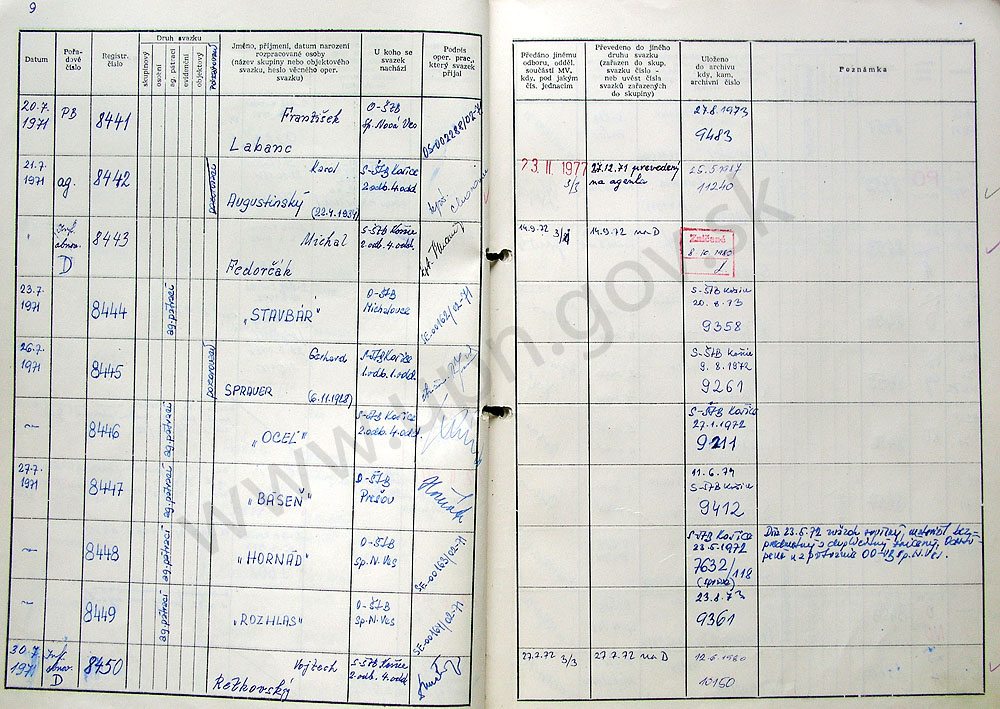 9
Druh svazku
Datum
Pořadové číslo
Registr. číslo
skupinový
osobní
ag. pátrací
evidenční
objektový
pozorovací
Jméno, příjmení, datum narození
rozpracované osoby
(název skupiny nebo objektového
svazku, heslo věcného oper.
svazku)
U koho se
svazek
nachází
Podpis
oper. prac.,
který svazek
přijal
Předáno jinému
odboru, odděl.
součásti MV,
kdy, pod jakým
čís. jednacím
Převedeno do jiného
druhu svazku
(zařazen do skup.
svazku číslo -
neb uvést čísla
svazků zařazených
do skupiny)
Uloženo
do archivu
kdy, kam,
archivní číslo
Poznámka
20.7. 1971 PB 8441 František
Labanc
O-ŠtB
Sp. Nová Ves
27.8.1973
9483
21.7. 1971 ag. 8442 pozorovací Karol
Augustínský (22.4.1934)
S-ŠtB Košice
2.odb. 4.odd.
23. II. 1977
3/3
27.12.71 prevedený
na agenta
11240
" D 8443 Michal
Fedorčák
S-ŠtB Košice
2.odb. 4.odd.
14.9.72 3/
14.9.72 na D
Zničené
8. 10. 1980
23.7. 1971 8444 ag. pátrací "STAVBÁR"
O-ŠtB
Michalovce
SE-00162/02-71
S-ŠtB Košice
20.8.73
9358
26.7. 1971 8445 pozorovací Gerhard
SPRAVER (6.11.1928)
S-ŠtB Košice
1.odb. 1.odd.
S-ŠtB Košice
9.8.1972
9261
-"- 8446 ag. pátrací "OCEĽ"
S-ŠtB Košice
2.odb. 4.odd.
S-ŠtB Košice
27.1.1972
9211
27.7. 1971 8447 ag. pátrací "BÁSEŇ"
O-ŠtB
Prešov
11.6.74
S-ŠtB Košice
9412
-"- 8448 ag. pátrací "HORNÁD"
O-ŠtB
Sp.N.Ves
SE-00163/02-71
S-ŠtB Košice
23.5.1972
7632/118
Dňa 23.5.72
-"- 8449 ag. pátrací "ROZHLAS"
O-ŠtB
Sp.N.Ves
SE-00164/02-71
23.8.73
9361
30.7. 1971 D 8450 Vojtech
Režkovský
S-ŠtB Košice
2.odb. 4.odd.
27.7.72 3/3
27.7.72 na D
12.6.1980
10150
www.upn.gov.sk